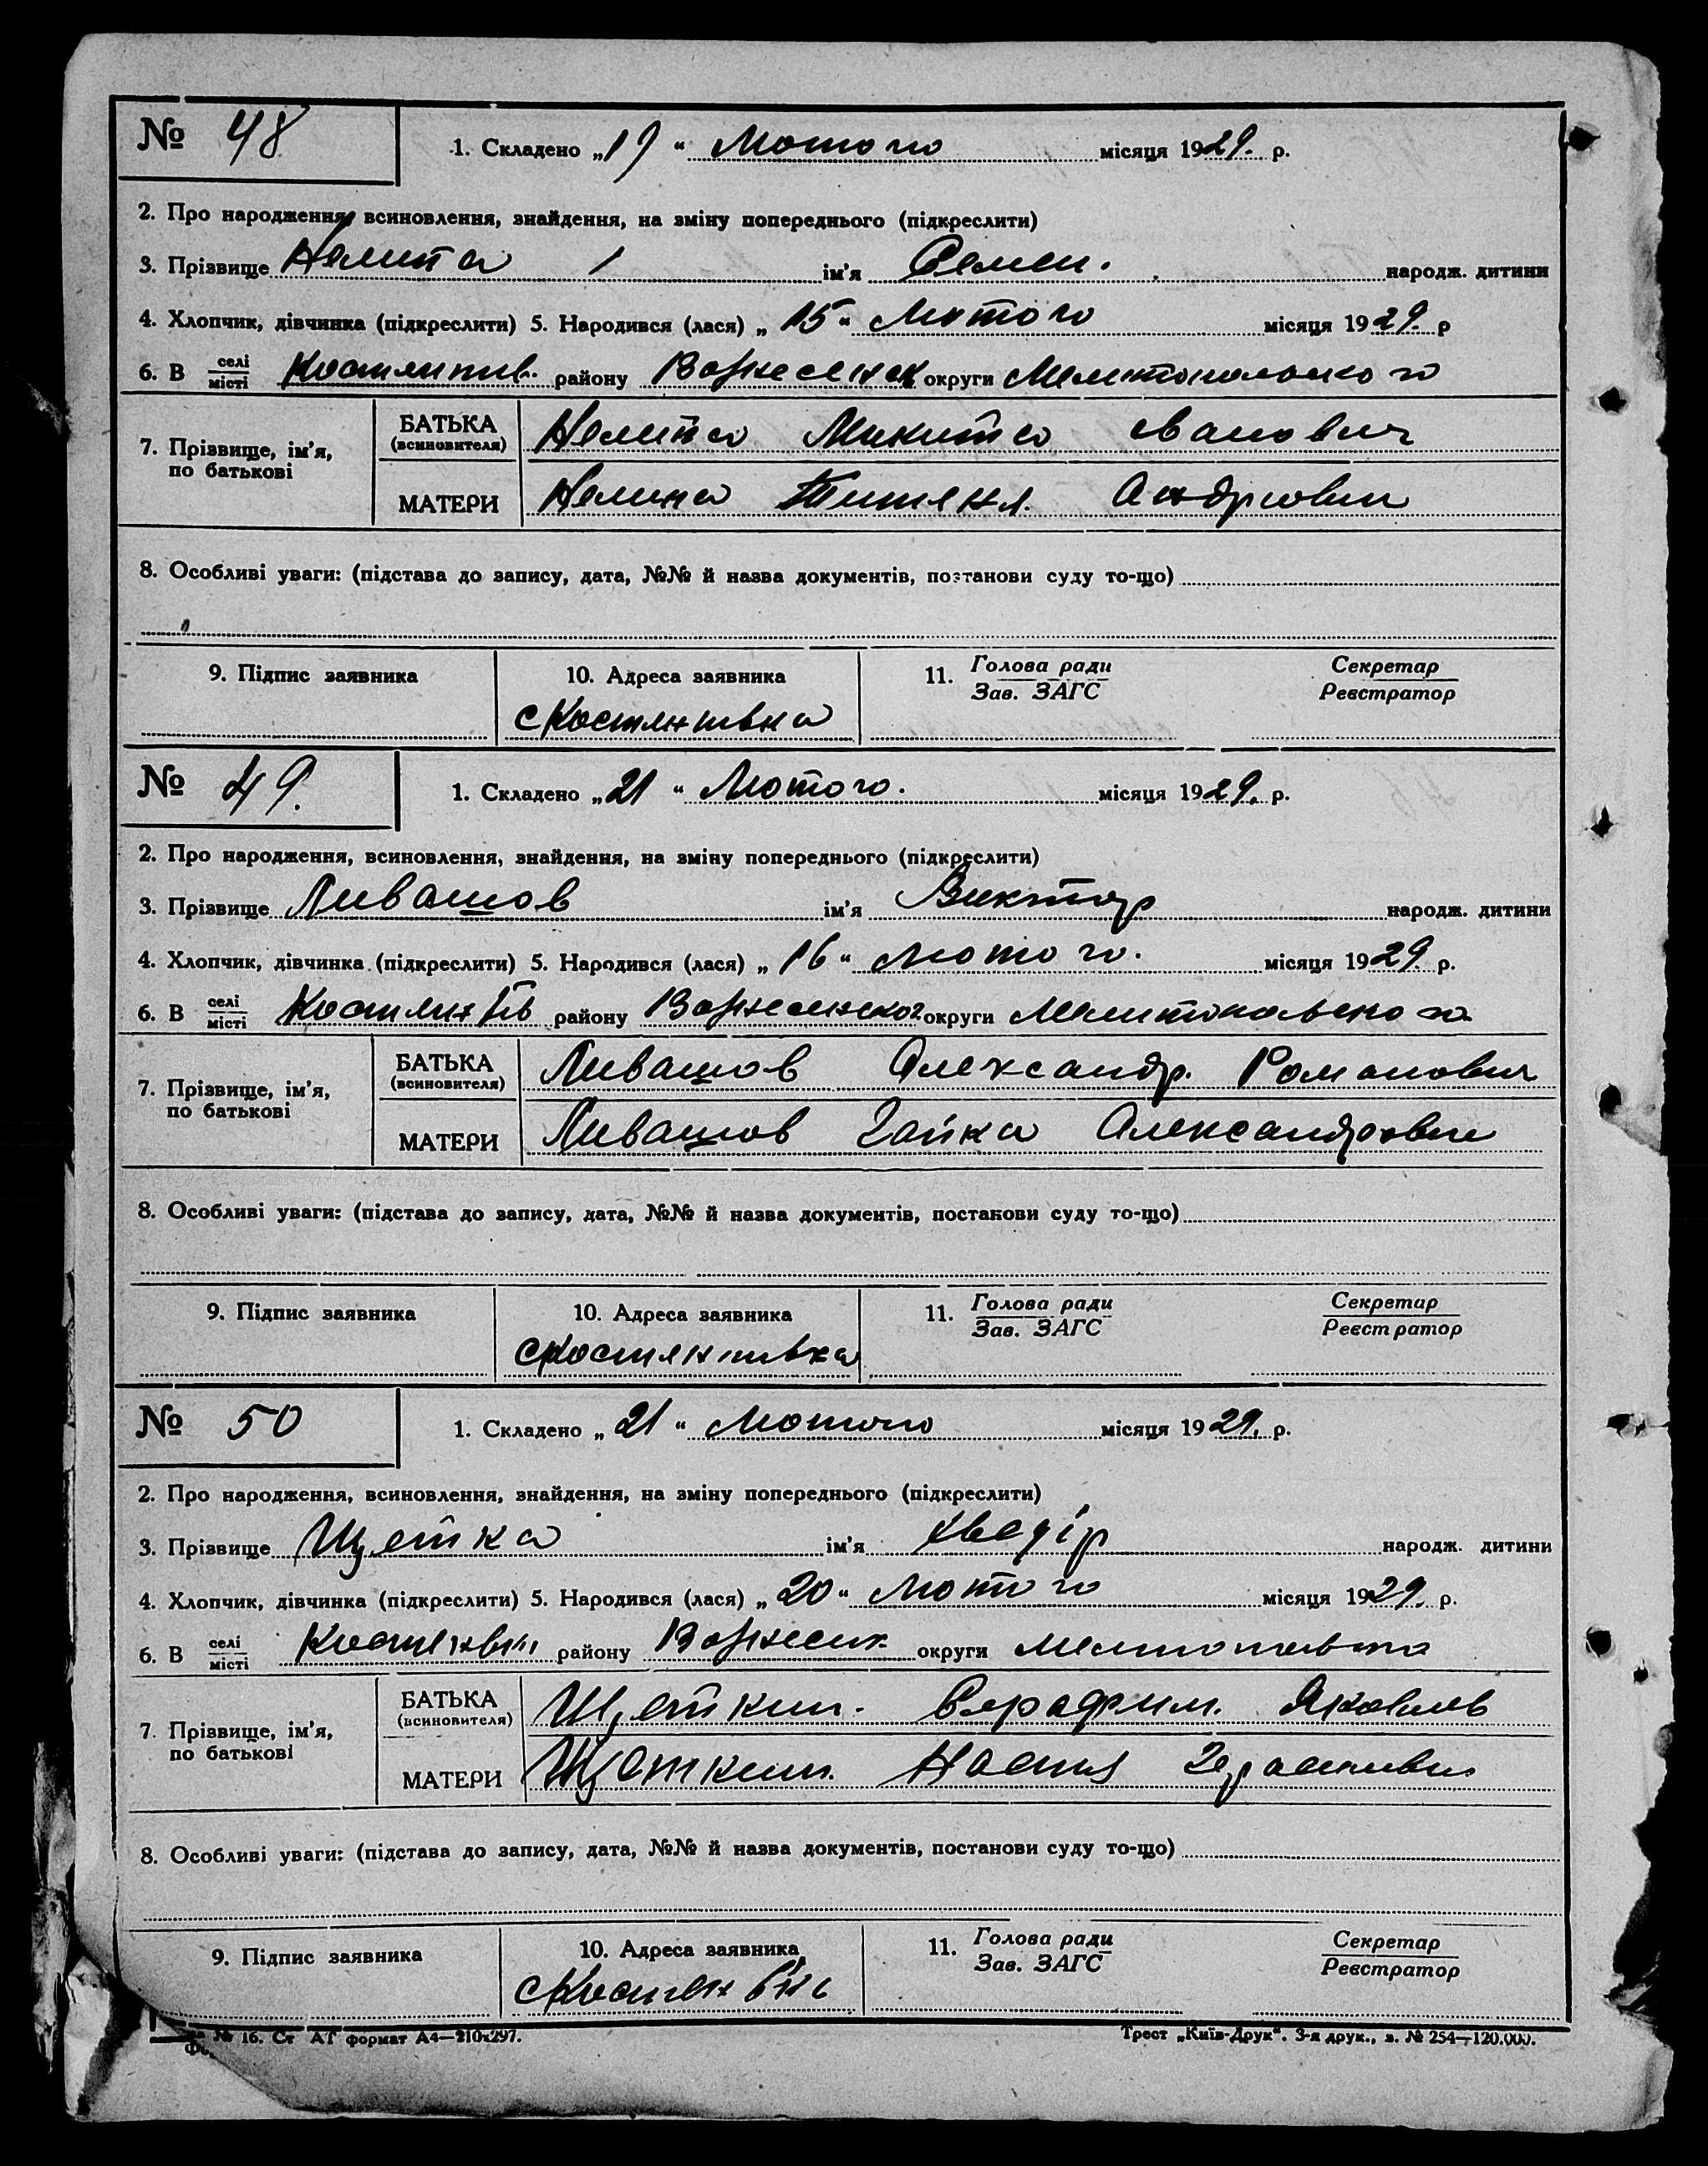 № 48 1. Складено „19“ Лютого місяця 1929. р.
2. Про народження, всиновлення, знайдення, на зміну попереднього (підкреслити)
3. Прізвище Нелипа ім'я Семен. народж. дитини
4. Хлопчик, дівчинка (підкреслити) 5. Народився (лася) „15“ Лютого місяця 1929. р
6. В селі/місті району округи Мелитопольского
7. Прізвище, ім'я, по батькові
БАТЬКА (всиновителя) Нелипа Микита Iванович
МАТЕРИ Нелипа Андріовни
8. Особливі уваги: (підстава до запису, дата, №№ й назва документів, постанови суду то-що)
9. Підпис заявника 10. Адреса заявника 11. Голова ради/Зав. ЗАГС Секретар/Реєстратор
с Костянтивка
№ 49. 1. Складено „21“ Лютого. місяця 1929. р.
2. Про народження, всиновлення, знайдення, на зміну попереднього (підкреслити)
3. Прізвище Ливашов ім'я Виктор народж. дитини
4. Хлопчик, дівчинка (підкреслити) 5. Народився (лася) „16“ Лютого. місяця 1929. р.
6. В селі/місті району округи Мелитопольского
7. Прізвище, ім'я, по батькові
БАТЬКА (всиновителя) Ливашов Александр. Романович
МАТЕРИ Ливашов Александровни
8. Особливі уваги: (підстава до запису, дата, №№ й назва документів, постанови суду то-що)
9. Підпис заявника 10. Адреса заявника 11. Голова ради/Зав. ЗАГС Секретар/Реєстратор
с Костянтивка
№ 50 1. Складено „21“ Лютого місяця 1929. р.
2. Про народження, всиновлення, знайдення, на зміну попереднього (підкреслити)
3. Прізвище Щетка ім'я Хведір народж. дитини
4. Хлопчик, дівчинка (підкреслити) 5. Народився (лася) „20“ Лютого місяця 1929. р.
6. В селі/місті району округи
7. Прізвище, ім'я, по батькові
БАТЬКА (всиновителя) Щеткин. Серафим. Яковлев
МАТЕРИ Щеткин. Настя
8. Особливі уваги: (підстава до запису, дата, №№ й назва документів, постанови суду то-що)
9. Підпис заявника 10. Адреса заявника 11. Голова ради/Зав. ЗАГС Секретар/Реєстратор
№ 16. Ст АТ формат А4—210x297. Трест „Київ-Друк“. 3-я друк., з. № 254—120.000.